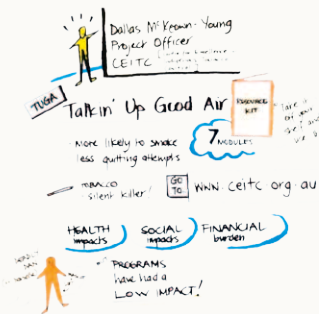 Dallas McKeown-Young
Project Officer
CEITC
TUGA
Talkin' Up Good Air
RESOURCE
KIT
7
MODULES
• more likely to smoke
less quitting attempts
TOBACCO
silent killer!
GO
TO
www.ceitc.org.au
HEALTH
impacts
SOCIAL
impacts
FINANCIAL
burden
PROGRAMS
have had a
LOW IMPACT!